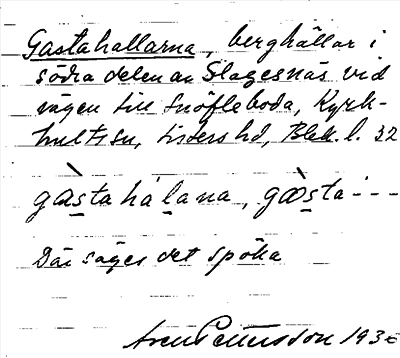 Gastahallarna, berghällar i
södra delen av Slagesnäs vid
vägen till Snöfleboda, Kyrk-
hults sn, Listers hd, Blek. l. 32
gàsta hálana, gòsta - - -
Där säges det spöka
Sven Pettersson 193